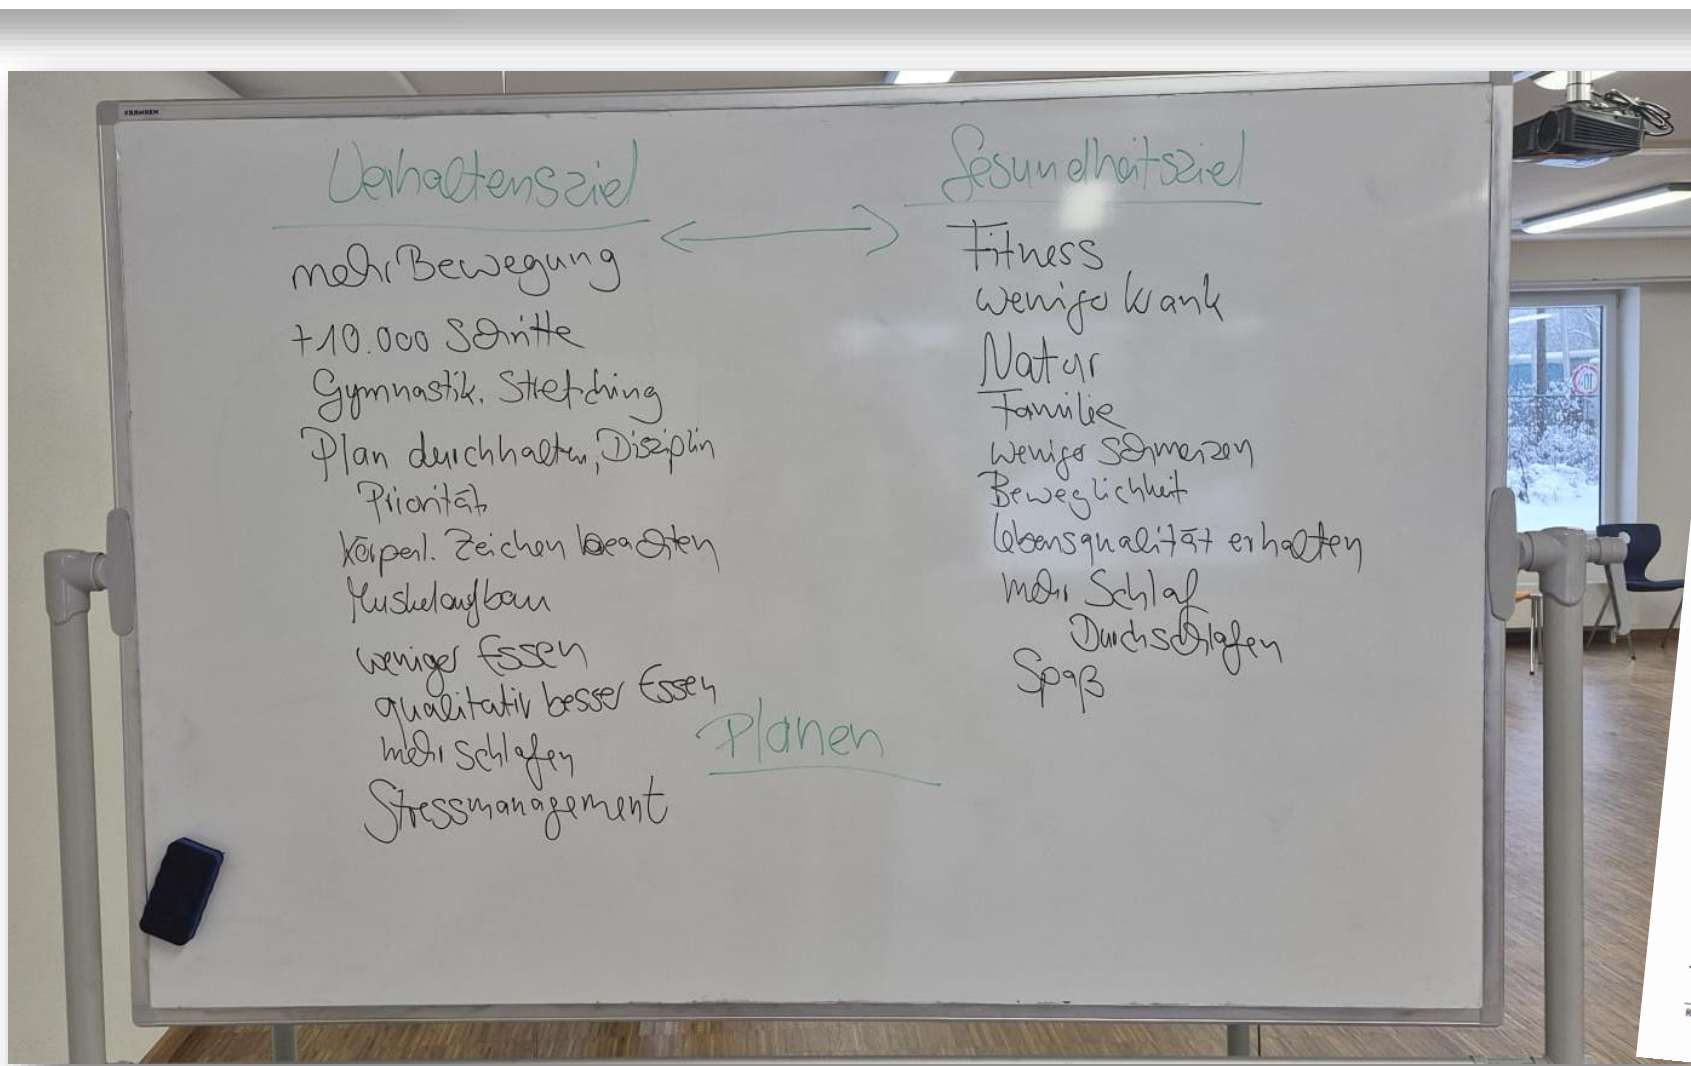 FRANKEN
Verhaltensziel
mehr Bewegung
+10.000 Schritte
Gymnastik. Stretching
Plan durchhalten, Disziplin
Priorität
Körperl. Zeichen beachten
Muskelaufbau
weniger Essen
qualitativ besser Essen
mehr schlafen
Stressmanagement
Planen
Gesundheitsziel
Fitness
weniger krank
Natur
Familie
weniger Schmerzen
Beweglichkeit
Lebensqualität erhalten
mehr Schlaf
Durchschlafen
Spaß